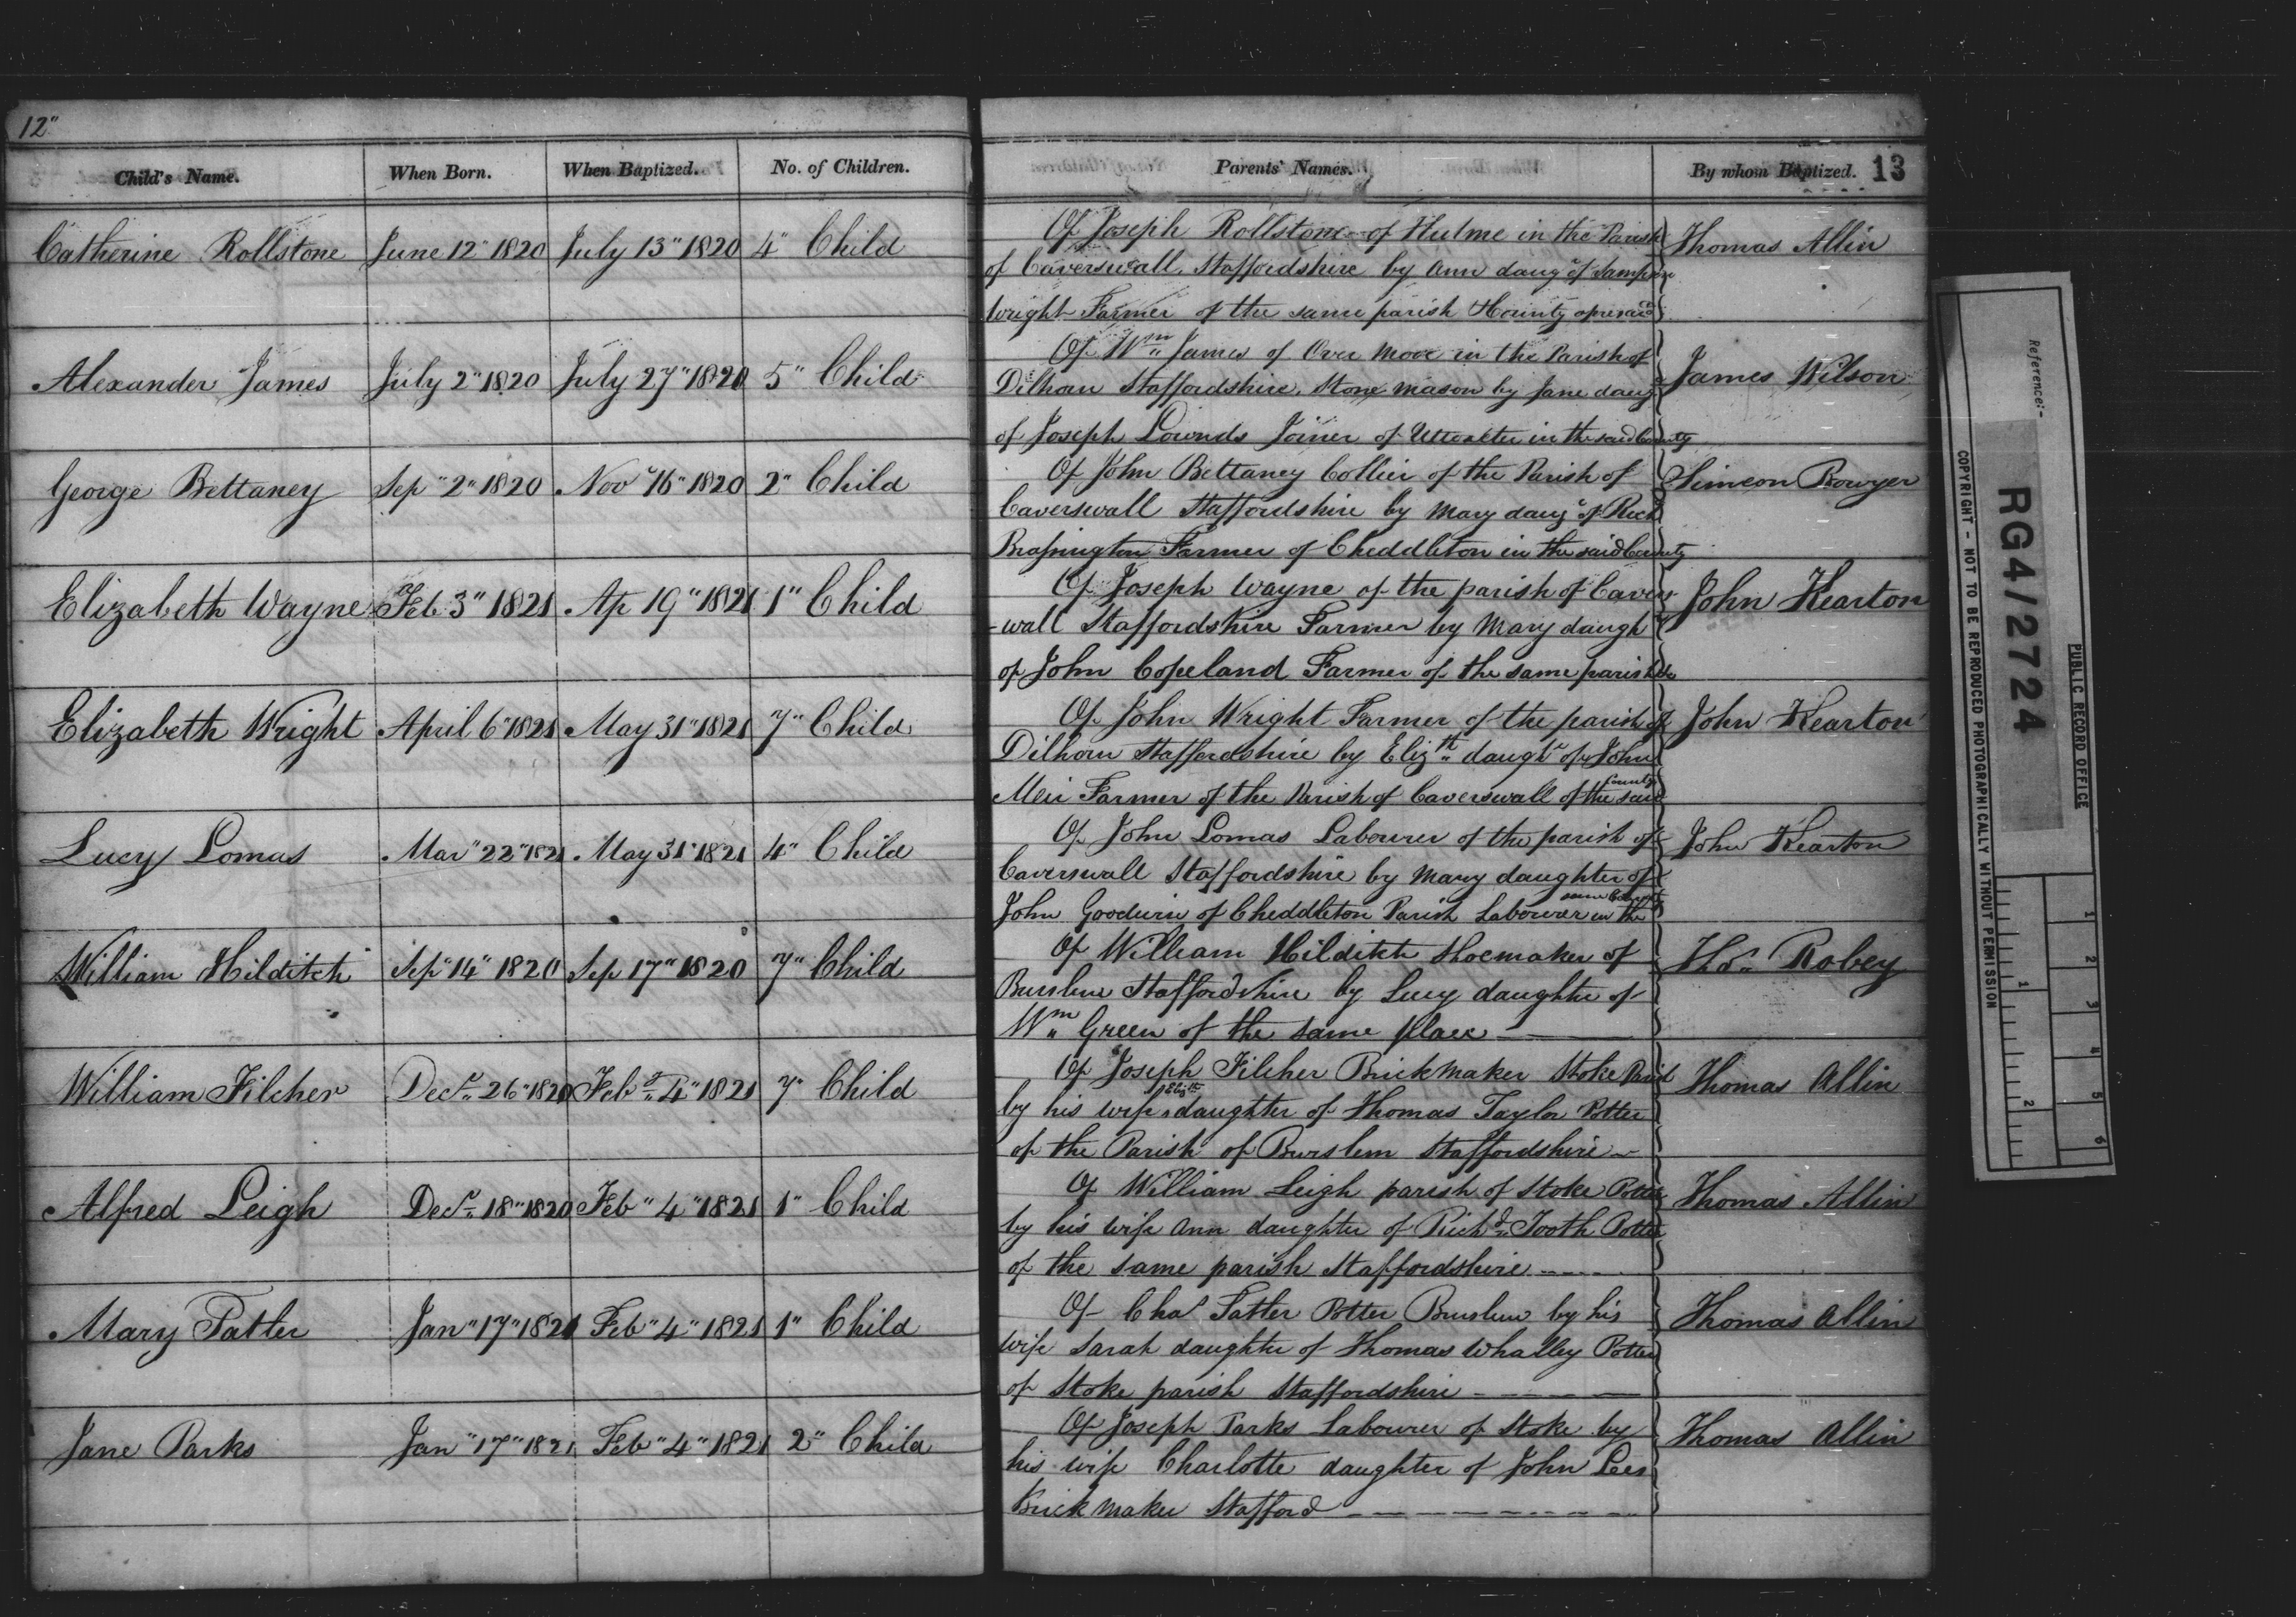 12"
Child's Name. When Born. When Baptized. No. of Children. Parents' Names. By whom Baptized. 13
Catherine Rollstone June 12" 1820 July 13" 1820 4" Child Of Joseph Rollstone of Hulme in the Parish Thomas Allin
of Caverswall Staffordshire by Ann daugr of Sampson
Wright Farmer of the same parish & County aforesaid
Alexander James July 2" 1820 July 27" 1820 5" Child Of Wm James of Over Moor in the Parish of James Wilson
Dilhorn Staffordshire, Stone Mason by Jane daugr
of Joseph Lownds Joiner of Uttoxeter in the said County
George Bettaney Sep" 2" 1820 Nov 16" 1820 2" Child Of John Bettaney Collier of the Parish of Simeon Bowyer
Caverswall Staffordshire by Mary daugr of Richd
Brassington Farmer of Cheddleton in the said County
Elizabeth Wayne Feb 3" 1821 Ap 19" 1821 1" Child Of Joseph Wayne of the parish of Cavers John Kearton
-wall Staffordshire Farmer by Mary daugh
of John Copeland Farmer of the same parish &c
Elizabeth Wright April 6" 1821 May 31" 1821 7" Child Of John Wright Farmer of the parish of John Kearton
Dilhorn Staffordshire by Elizth daughr of John
Meir Farmer of the Parish of Caverswall of the said County
Lucy Lomas Mar" 22" 1821 May 31" 1821 4" Child Of John Lomas Labourer of the parish of John Kearton
Caverswall Staffordshire by Mary daughter of
John Goodwin of Cheddleton Parish Labourer in the same County
William Hilditch Sep" 14" 1820 Sep 17" 1820 7" Child Of William Hilditch Shoemaker of Thos Robey
Burslem Staffordshire by Lucy daughter of
Wm Green of the same place
William Filcher Decr 26" 1820 Feb 4" 1821 7" Child Of Joseph Filcher Brickmaker Stoke Parish Thomas Allin
by his wife Elizth daughter of Thomas Taylor Potter
of the Parish of Burslem Staffordshire
Alfred Leigh Decr 18" 1820 Feb" 4" 1821 1" Child Of William Leigh parish of Stoke Potter Thomas Allin
by his wife Ann daughter of Richd Tooth Potter
of the same parish Staffordshire
Mary Tatler Jan" 17" 1821 Feb" 4" 1821 1" Child Of Chas Tatler Potter Burslem by his Thomas Allin
wife Sarah daughter of Thomas Whalley Potter
of Stoke parish Staffordshire
Jane Parks Jan" 17" 1821 Feb" 4" 1821 2" Child Of Joseph Parks Labourer of Stoke by Thomas Allin
his wife Charlotte daughter of John Lees
Brick Maker Stafford
Reference:-
RG4/2724
PUBLIC RECORD OFFICE
COPYRIGHT - NOT TO BE REPRODUCED PHOTOGRAPHICALLY WITHOUT PERMISSION
1 2
1 2 3 4 5 6